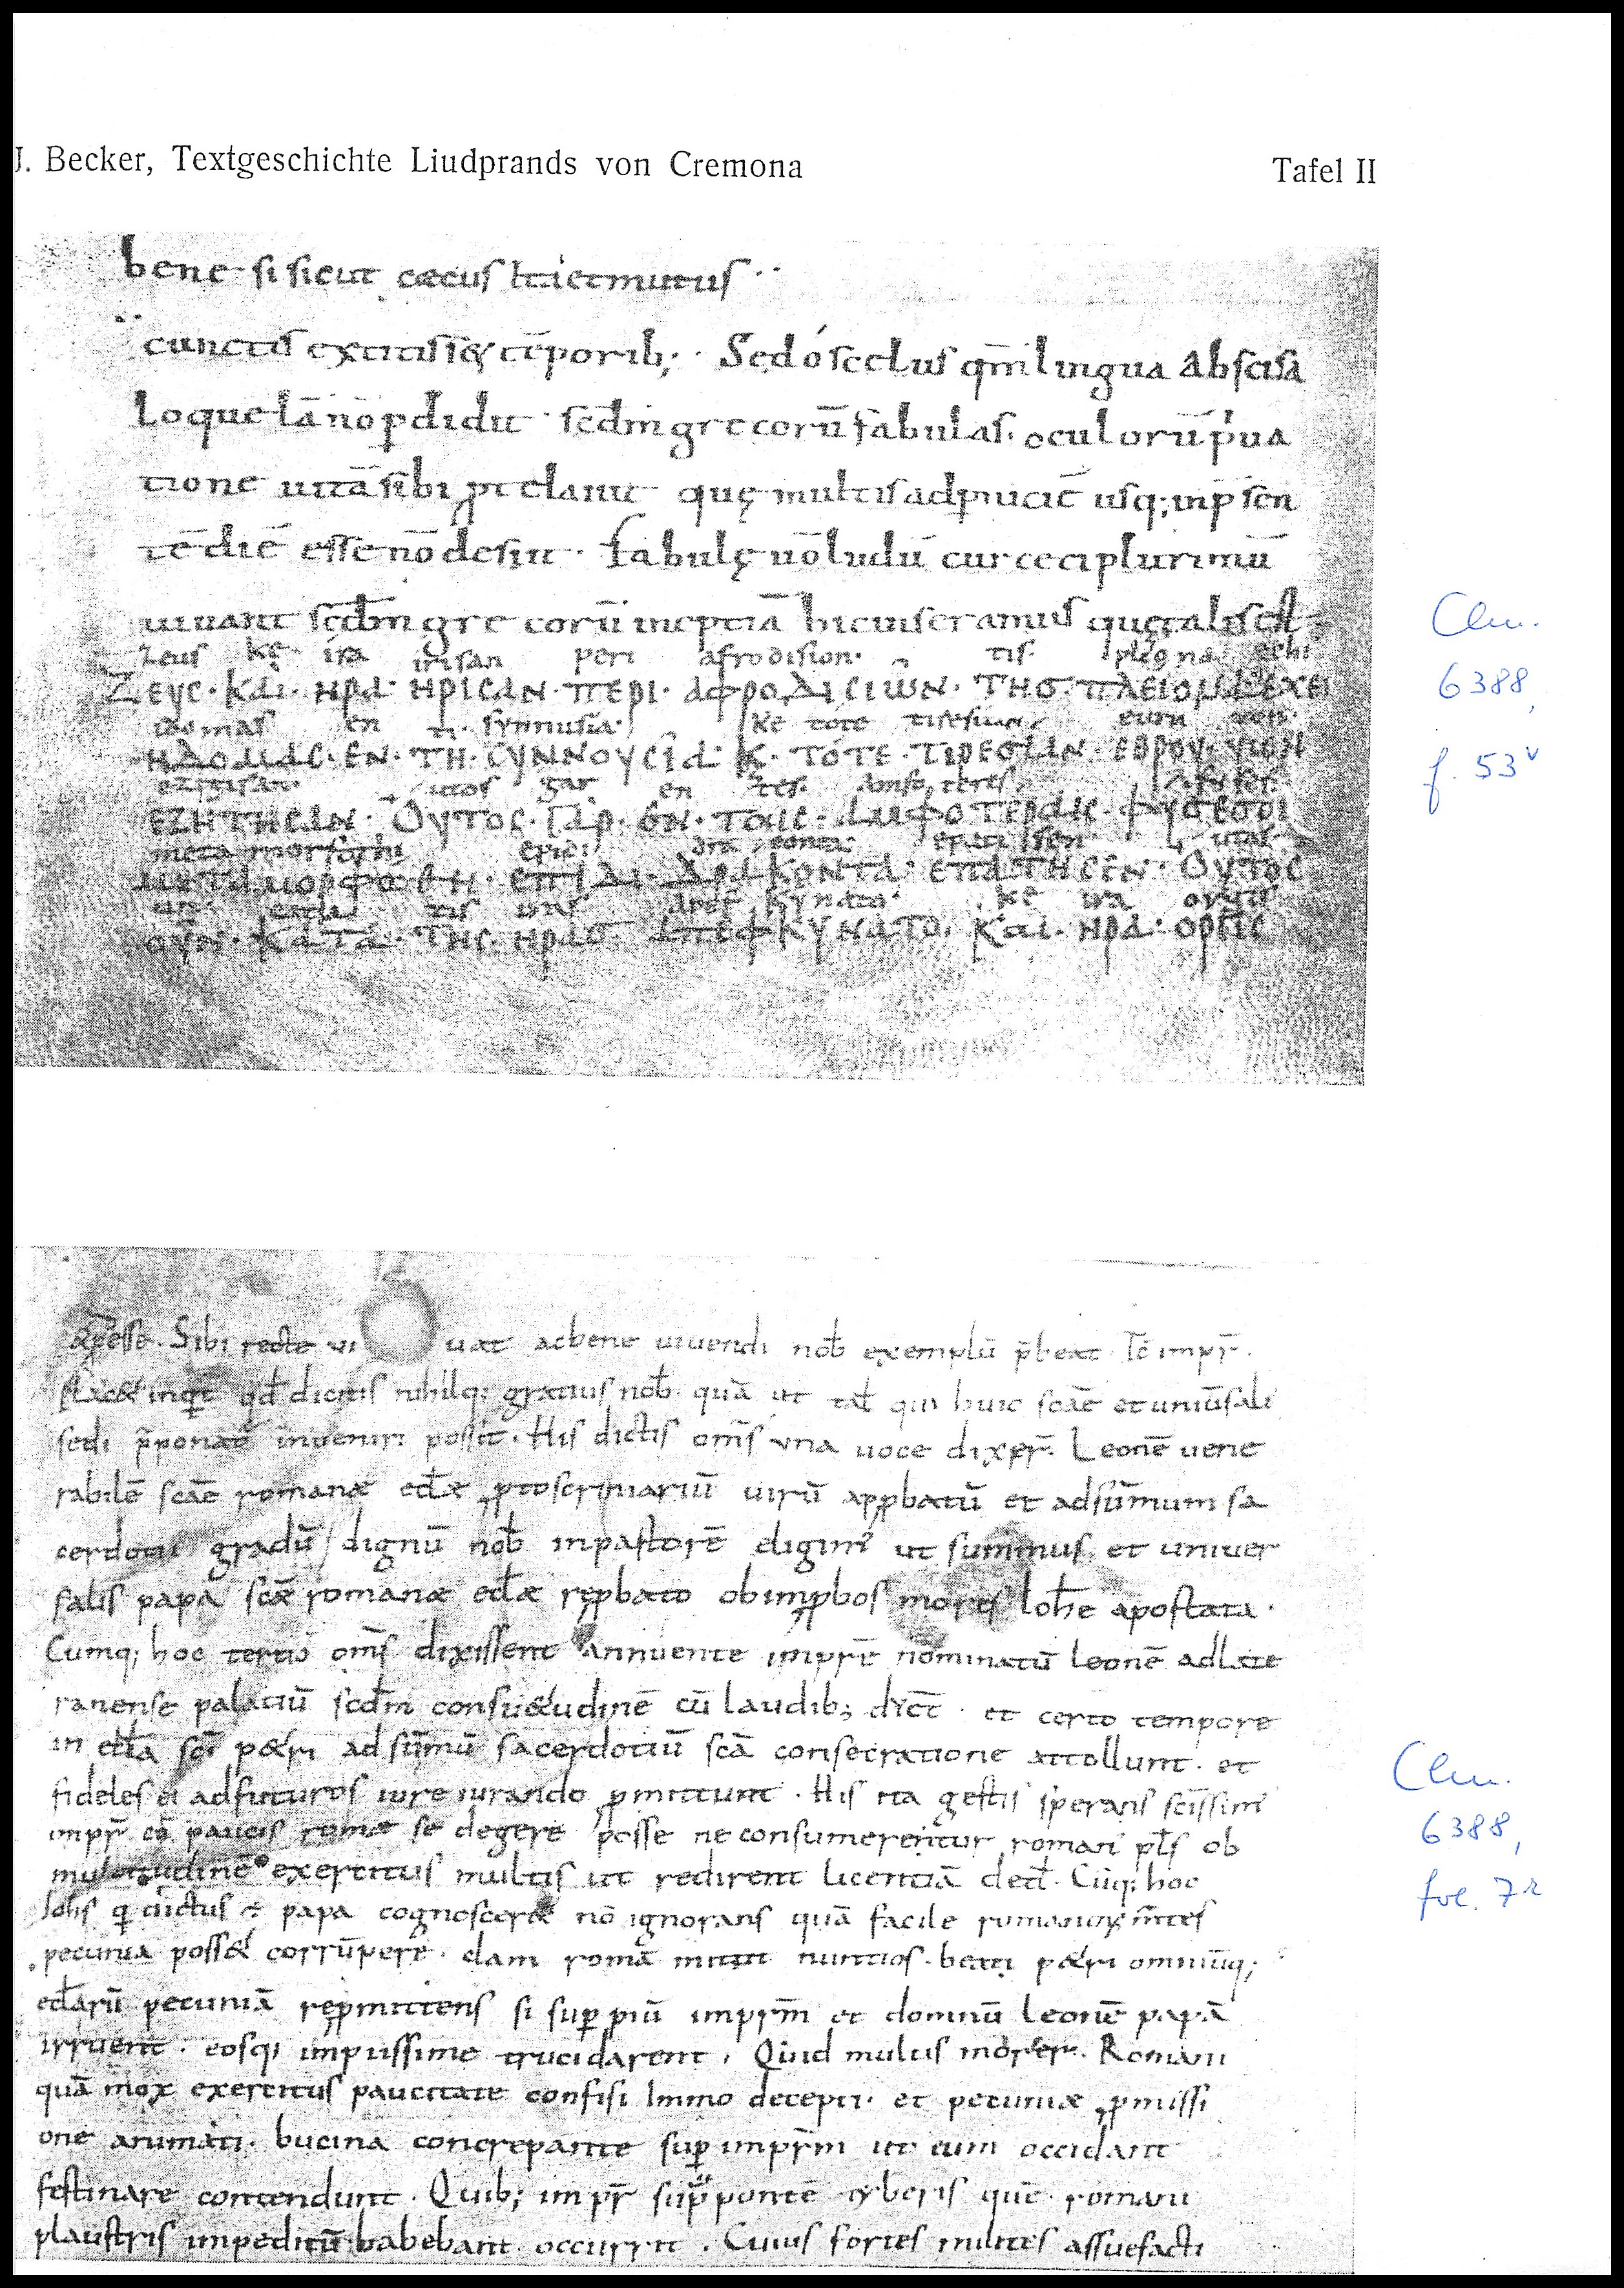 J. Becker, Textgeschichte Liudprands von Cremona
Tafel II
bene si sicut cęcus ita et mutus
cunctis extitiss& tēporib; · Sed ó scelus qm̄ lingua abscisa
loquelā nō pdidit · scdm grecorū fabulas. oculorū pua
tione uitā sibi ptelauit quę multis ad pniciē usq; in psen
tē diē esse nō desiit · fabulę uō ludū cur ceci plurimū
uiuant scdm grecorū ineptiā hic inseramus quę talis est
zeus ke ira irisan peri afrodision · tis · echi
ΖΕΥС · ΚΑΙ · ΗΡΑ · ΗΡΙСΑΝ · ΠΕΡΙ · ΑΦΡΟΔΙСΙΩΝ · ΤΗС ·
en ti synnusia · ke tote
ΗΔΟΜΑС · ΕΝ · ΤΗ · СΥΝΝΟΥСΙΑ · Κ · ΤΟΤΕ · ΤΙΡΕСΙΑΝ · ΕΒΡΟΥ · ΥΙΟΝ
ezitisan · utos gar en tes
ΕΖΗΤΗСΑΝ · ΟΥΤΟС · ΓΑΡ · ΕΝ · ΤΑΙС · ΑΜΦΟΤΕΡΑΙС · ΦΥСΕСΙ
metamorfothi
ΜΕΤΑΜΟΡΦΟΘΗ · ΕΠΙΔΙ · ΔΡΑΚΟΝΤΑ · ΕΠΑΤΗСΕΝ · ΟΥΤΟС
un · cata tis iras ke ira
ΟΥΝ · ΚΑΤΑ · ΤΗС · ΗΡΑС · ΑΠΕΦΚΥΝΑΤΟ · ΚΑΙ · ΗΡΑ · ΟΡΓΙС
Clm.
6388,
f. 53v
Sibi recte vi uat ac bene uiuendi nob exemplū pbeat Tc̄ impr̄ ·
inqt qd dicitis nihilq; gratius nob quā ut tal qui huic scāe et uniūsali
sedi pponat& inueniri possit · His dictis om̄s vna uoce dixer̄ Leonē uene
rabilē scāe romanæ eclæ ptoscriniariū uirū appbatū et ad sūmum sa
cerdotii gradū dignū nob in pastorē eligim' ut summus et univer
salis papa scāe romanæ eclæ repbato ob impbos mores Iohe apostata ·
Cumq; hoc tertio om̄s dixissent annuente imprē nominatū leonē ad late
ranense palatiū scdm consu&udinē cū laudib; et certo tempore
in ecla sci p&ri ad sūmū sacerdotiū scā consecratione attollunt · et
fideles ei adfuturos iure iurando pmittunt · His ita gestis sperans scissim'
impr̄ cū paucis romæ se degere posse ne consumerentur romani pls ob
multitudinē exercitus multis ut redirent licentiā ded. Cūq; hoc
Iohs q dictus ÷ papa cognoscer& nō ignorans quā facile romanor m̄tes
pecunia poss& corrūpere · clam romā mittit nuntios · beati p&ri omniūq;
eclarū pecuniā repmittens si sup piū impr̄m et domnū leonē papā
irruent · eosq; impiissime trucidarent · Quid multus morer. Romani
quā mox exercitus paucitate confisi Immo decepti · et pecuniæ pmissi
one animati · bucina concrepante sup impr̄m ut eum occidant
festinare contendunt · Quib; impr̄ supponte tyberis quē romani
plaustris impeditū habebant occurrit · Cuius fortes milites assuefacti
Clm.
6388,
fol. 7r